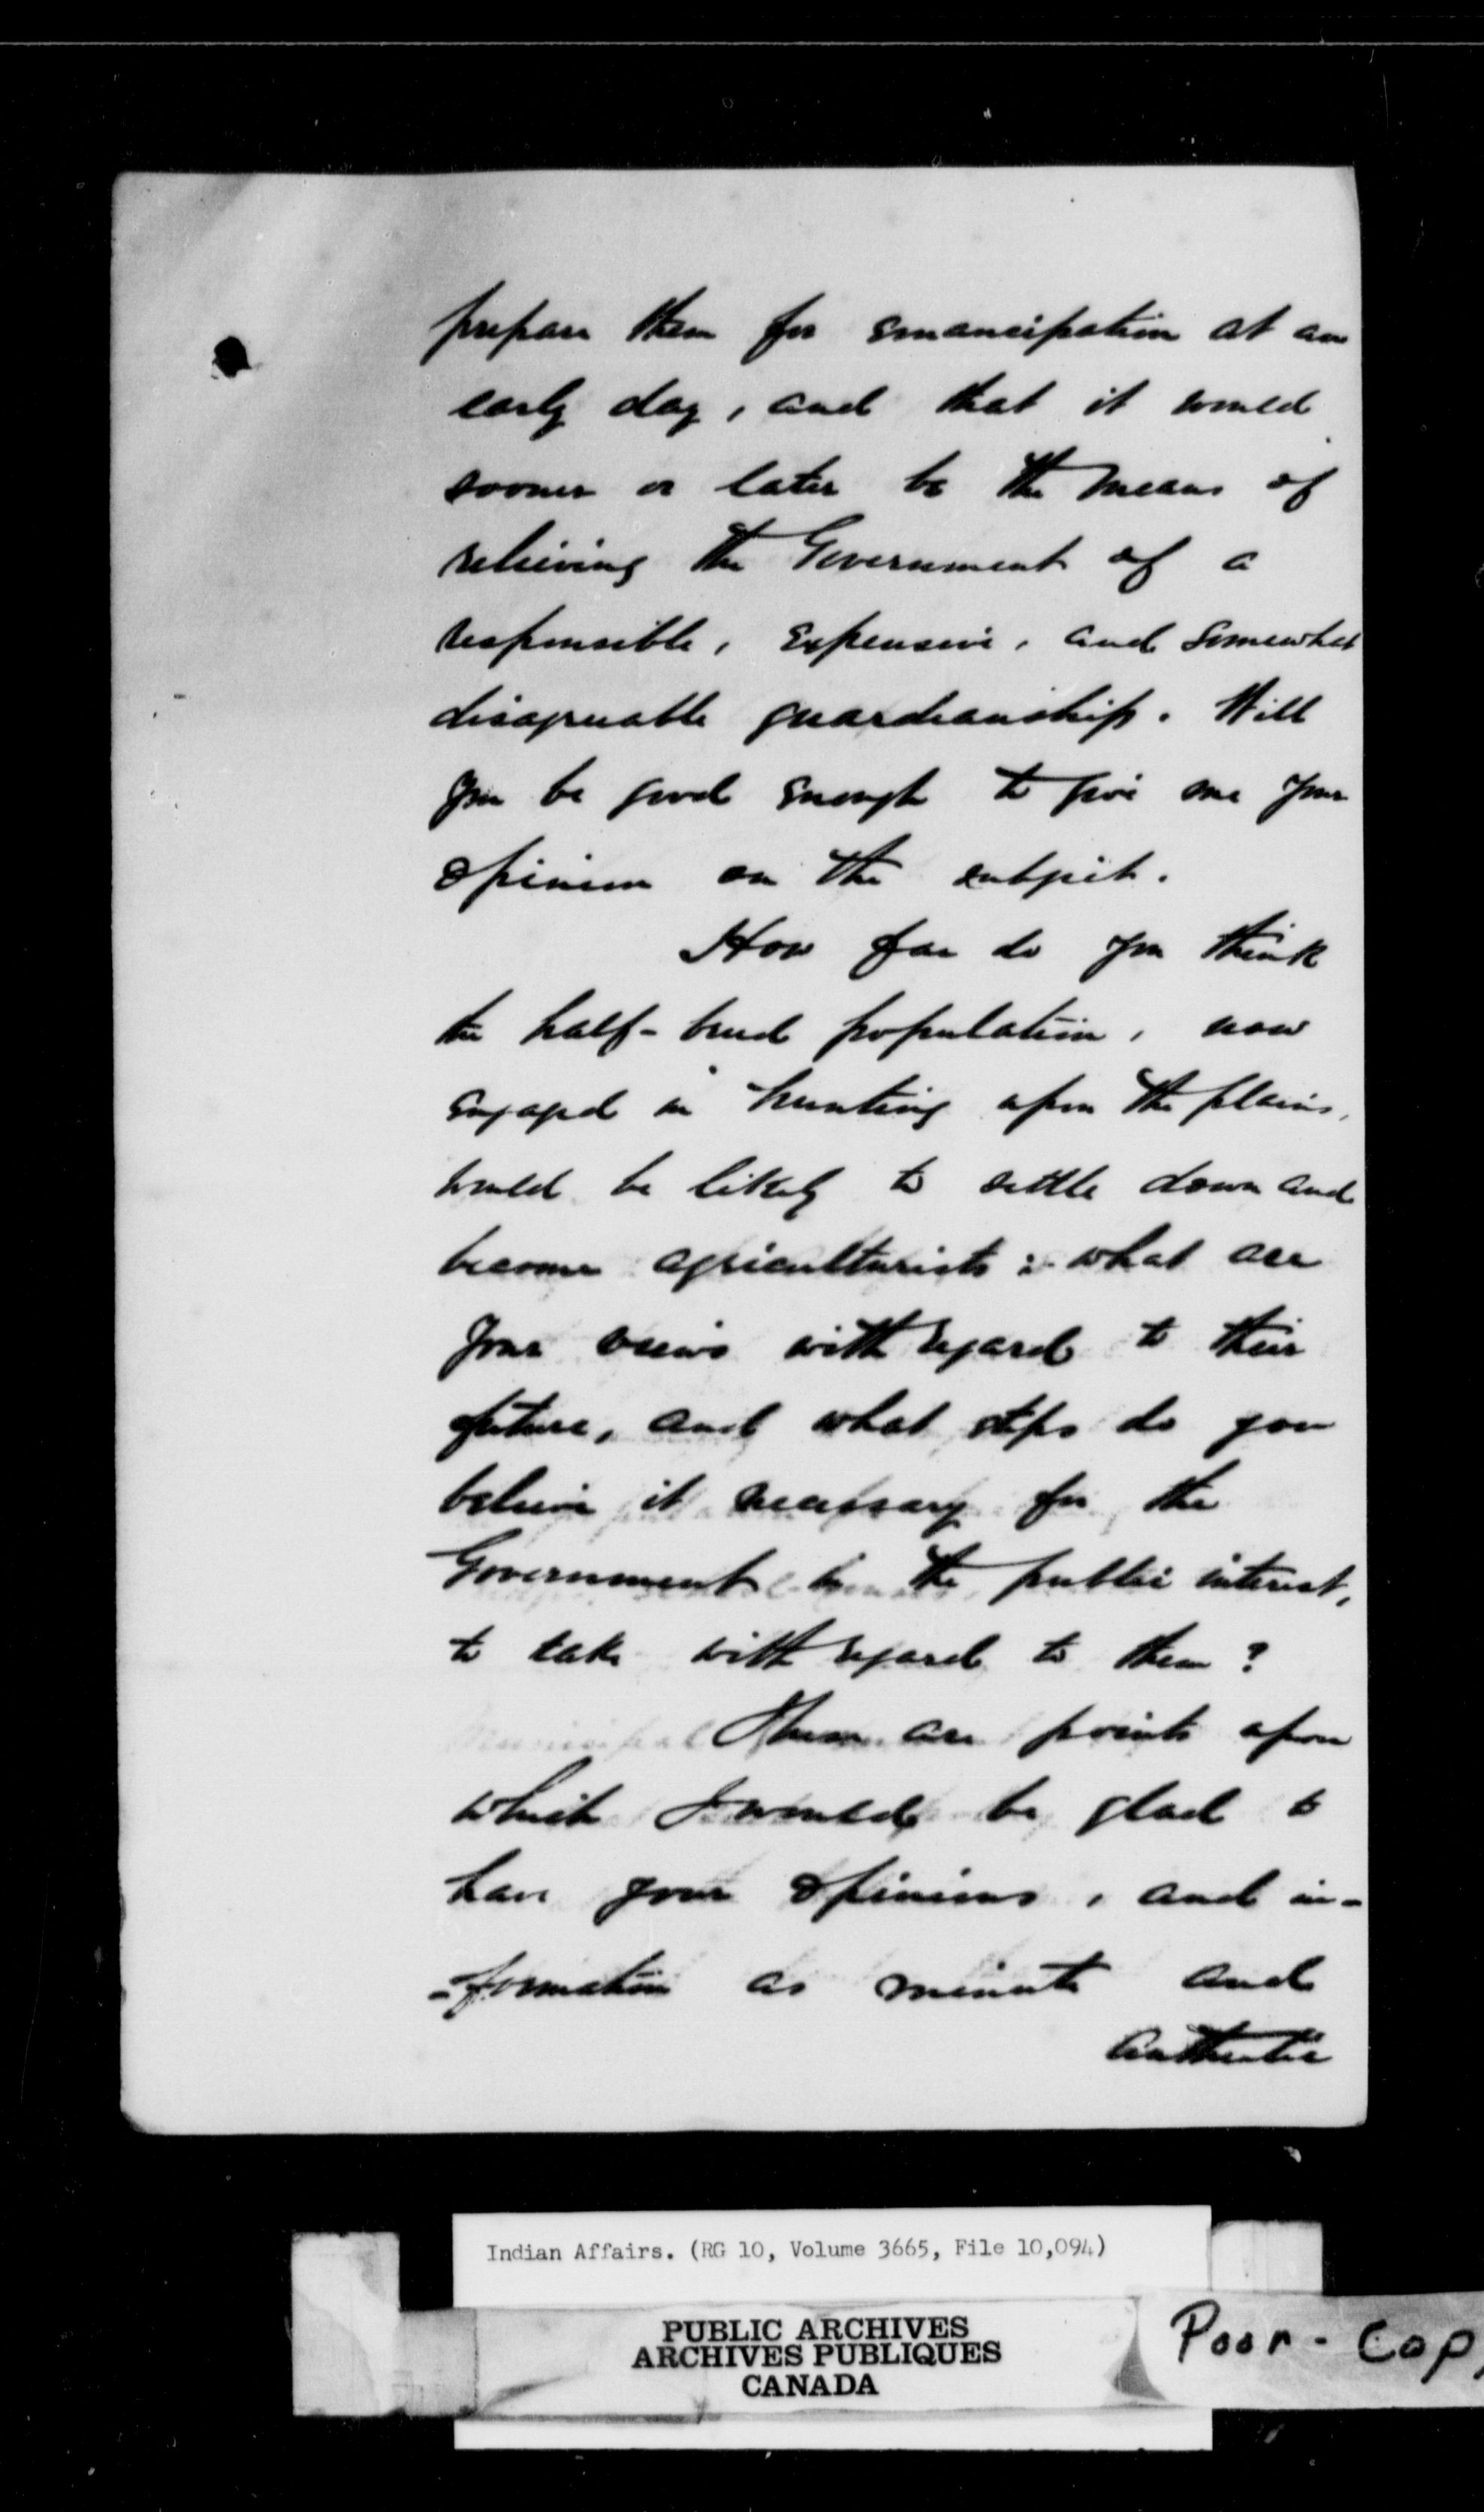 prepare them for emancipation at an
early day, and that it would
sooner or later be the means of
relieving the Government of a
responsible, expensive, and somewhat
disagreeable guardianship. Will
you be good enough to give me your
opinion on the subject.
How far do you think
the half-breed population, now
engaged in hunting upon the plains,
would be likely to settle down and
become agriculturists; what are
your views with regard to their
future, and what steps do you
believe it necessary for the
Government in the public interest,
to take with regard to them?
These are points upon
which I would be glad to
have your opinions, and in-
-formation as minute and
authentic
Indian Affairs. (RG 10, Volume 3665, File 10,094)
PUBLIC ARCHIVES
ARCHIVES PUBLIQUES
CANADA
Poor - Cop